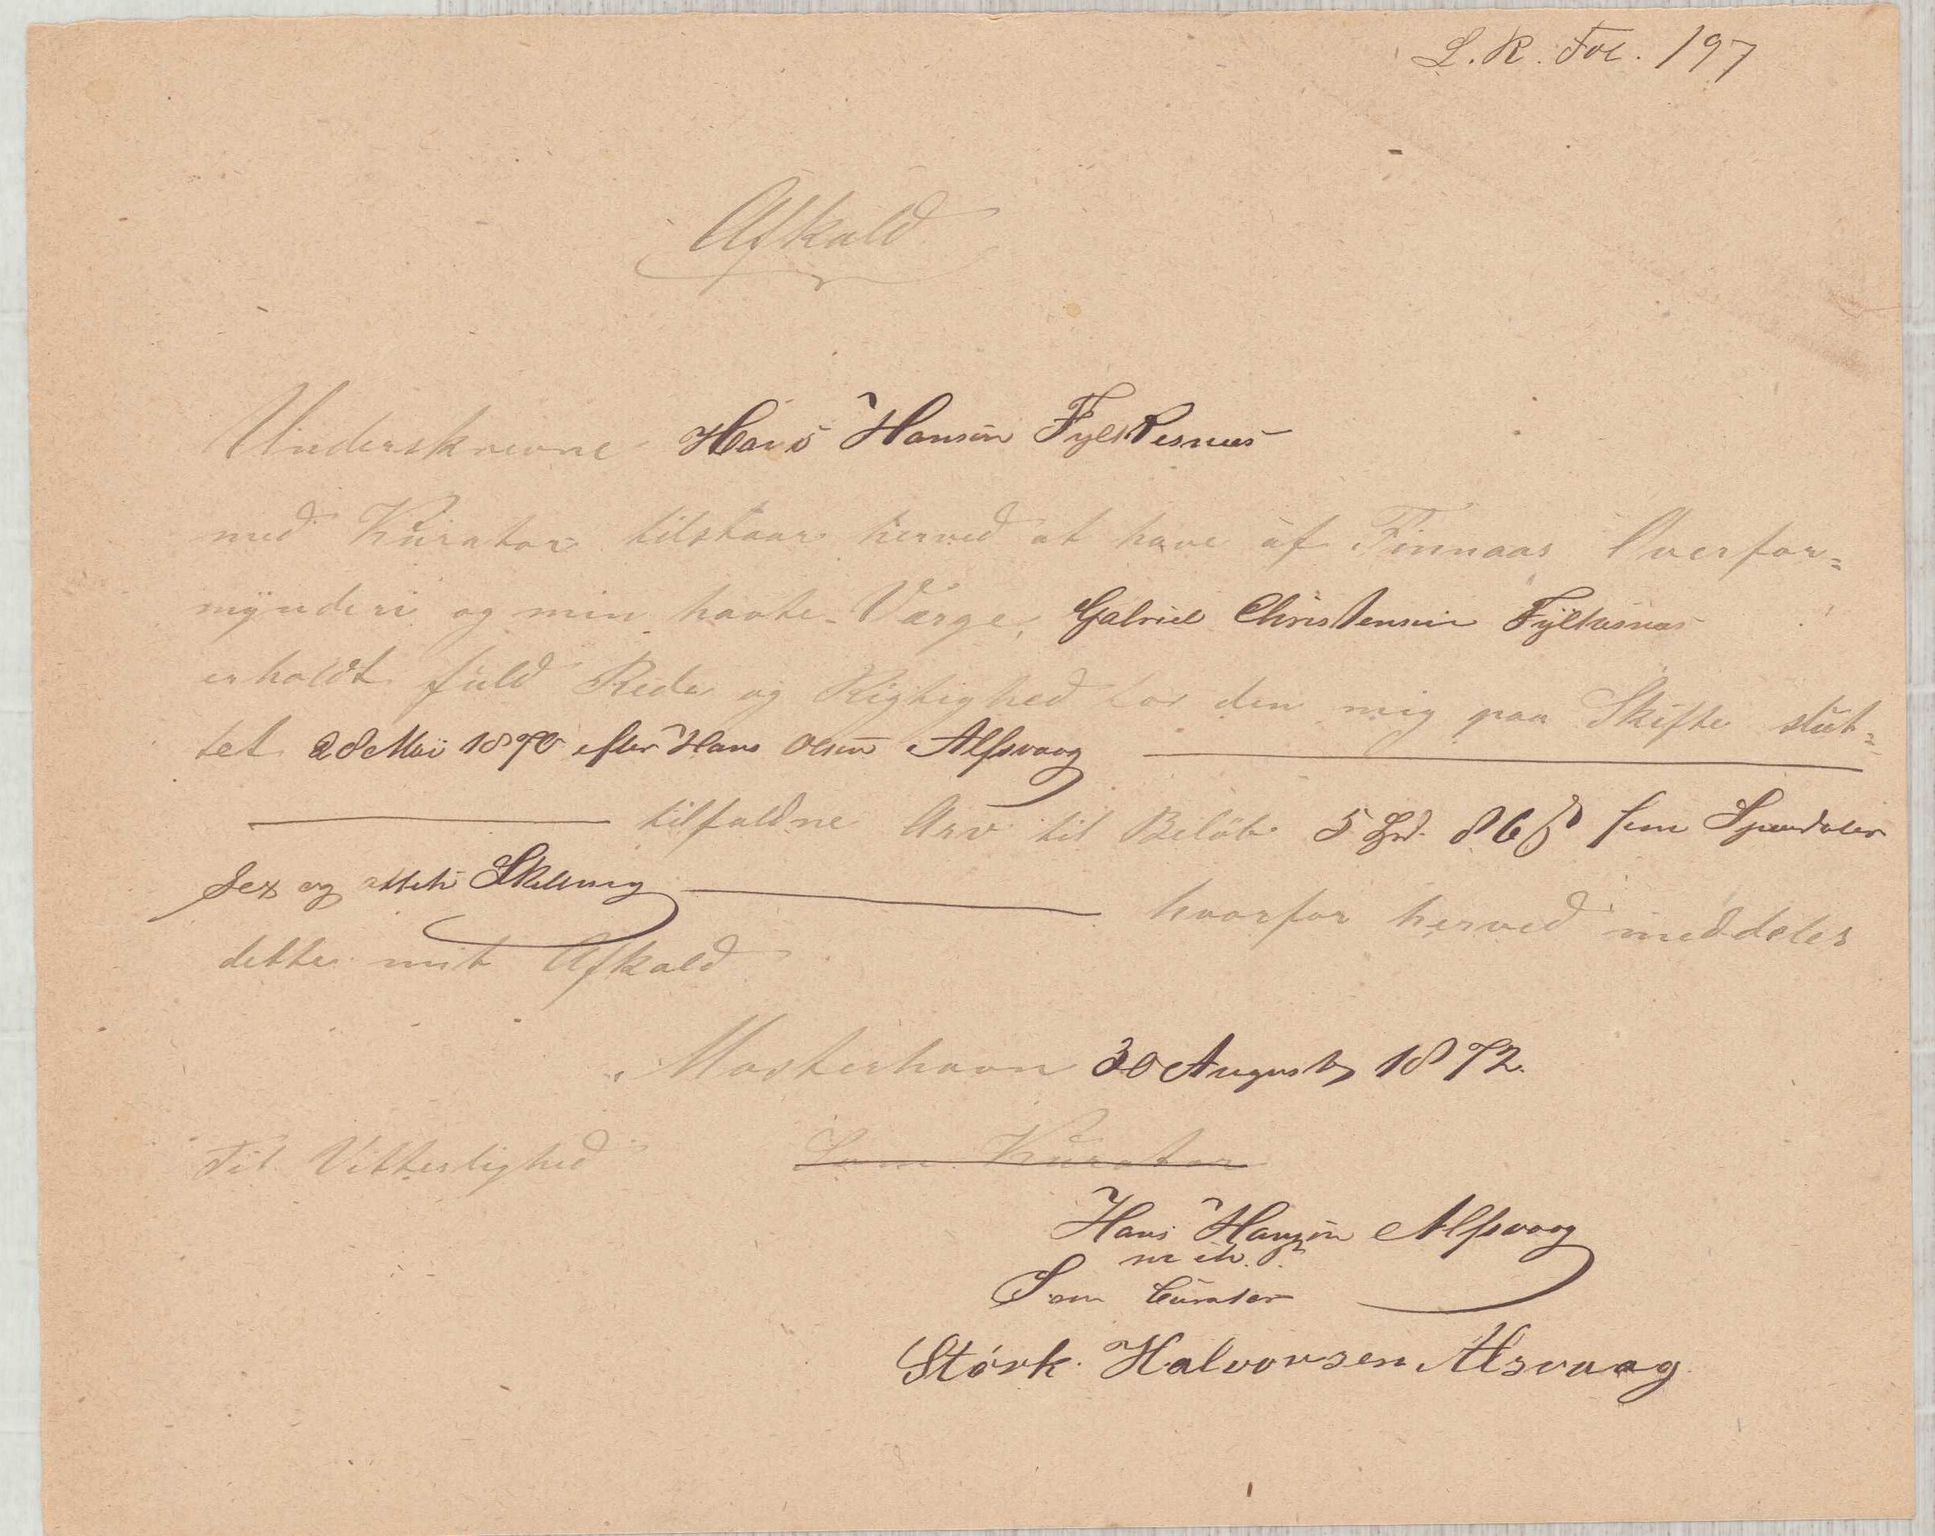 L. R. Fol. 197
Afkald
Underskrevne Hans Hansøn Fylkesnæs
med Kurator tilstaar herved at have af Finnaas Overfor=
mynderi og min havte Værge, Gabriel Christensen Fylkesnæs
erholdt fuld Rede og Rigtighed for den mig paa Skifte slut=
tet 28 Mai 1870 efter Hans Olsen Alfsvaag
tilfaldne Arv til Beløb 5 Spd. 86 ß fem Speciedaler
sex og otteti Skilling hvorfor herved meddeles
dette mit Afkald
Mosterhavn 30 August 1872.
Til Vitterlighed Som Kurator
Hans Hansøn Alfsvaag
m. P.
Som Curator
Størk Halvorsen Alsvaag